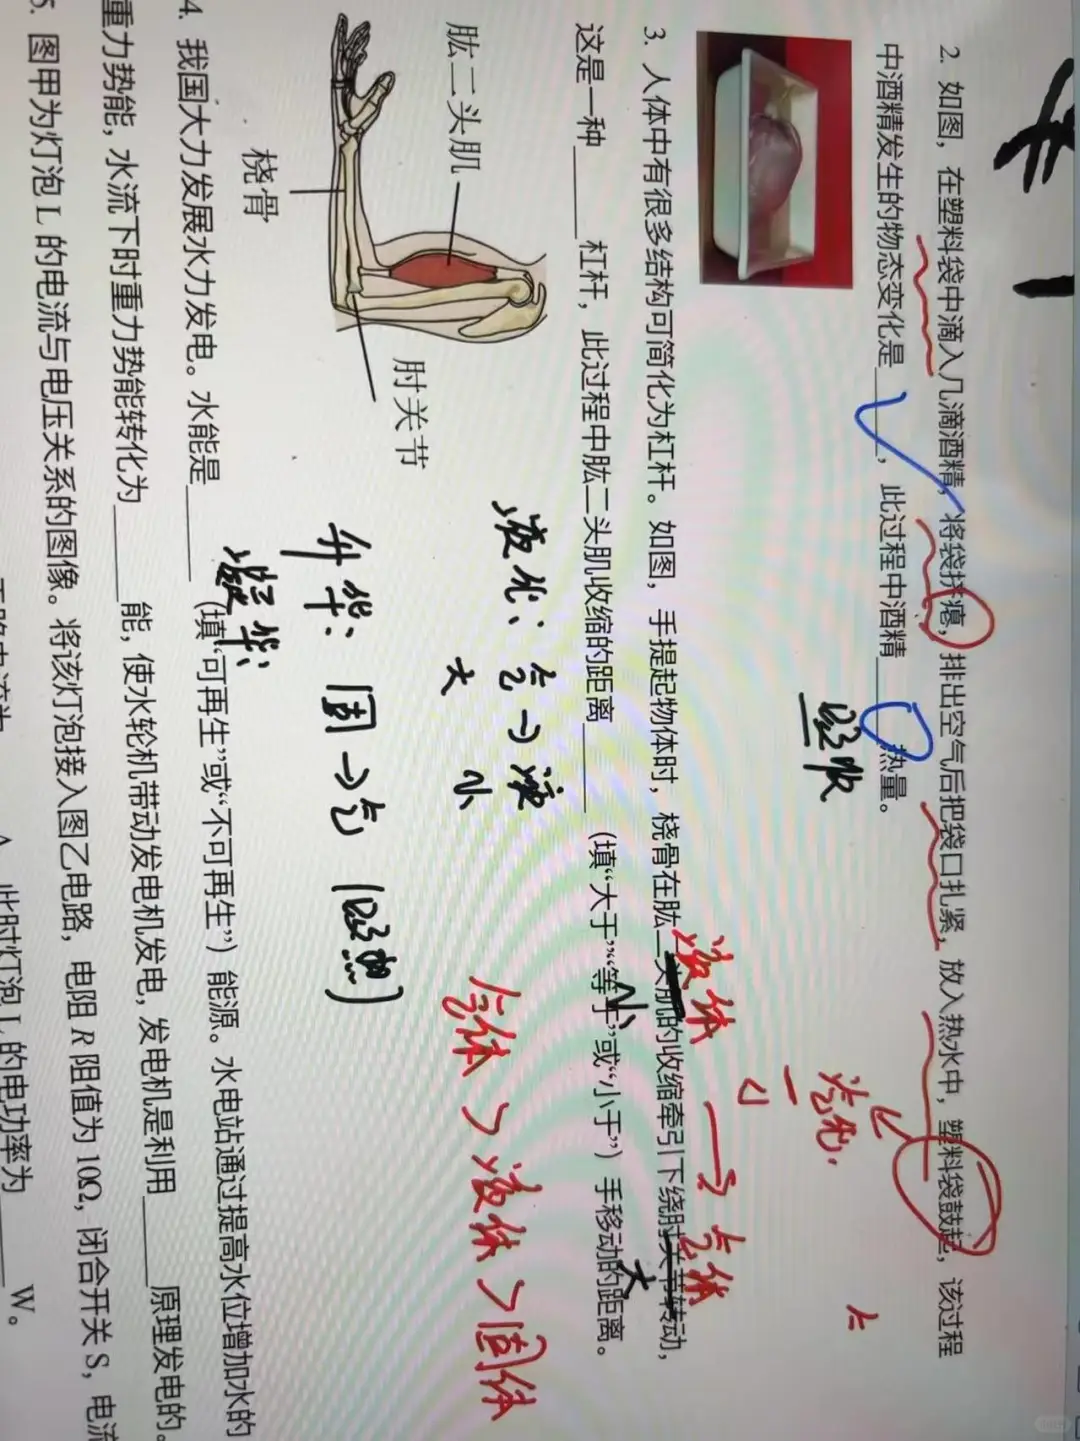 2. 如图，在塑料袋中滴入几滴酒精，将袋挤瘪，排出空气后把袋口扎紧，放入热水中，塑料袋鼓起，该过程
中酒精发生的物态变化是____，此过程中酒精____热量。
吸收
汽化
液体 → 气体
小
大
3. 人体中有很多结构可简化为杠杆。如图，手提起物体时，桡骨在肱二头肌的收缩牵引下绕肘关节转动，
这是一种____杠杆，此过程中肱二头肌收缩的距离____（填“大于”“等于”或“小于”）手移动的距离。
肱二头肌
肘关节
桡骨
液化：气→液
大 小
升华：固→气（吸热）
凝华：
气体＞液体＞固体
4. 我国大力发展水力发电。水能是____（填“可再生”或“不可再生”）能源。水电站通过提高水位增加水的
重力势能，水流下时重力势能转化为____能，使水轮机带动发电机发电，发电机是利用____原理发电的。
5. 图甲为灯泡 L 的电流与电压关系的图像。将该灯泡接入图乙电路，电阻 R 阻值为 10Ω，闭合开关 S，电流
A，此时灯泡 L 的电功率为____W。